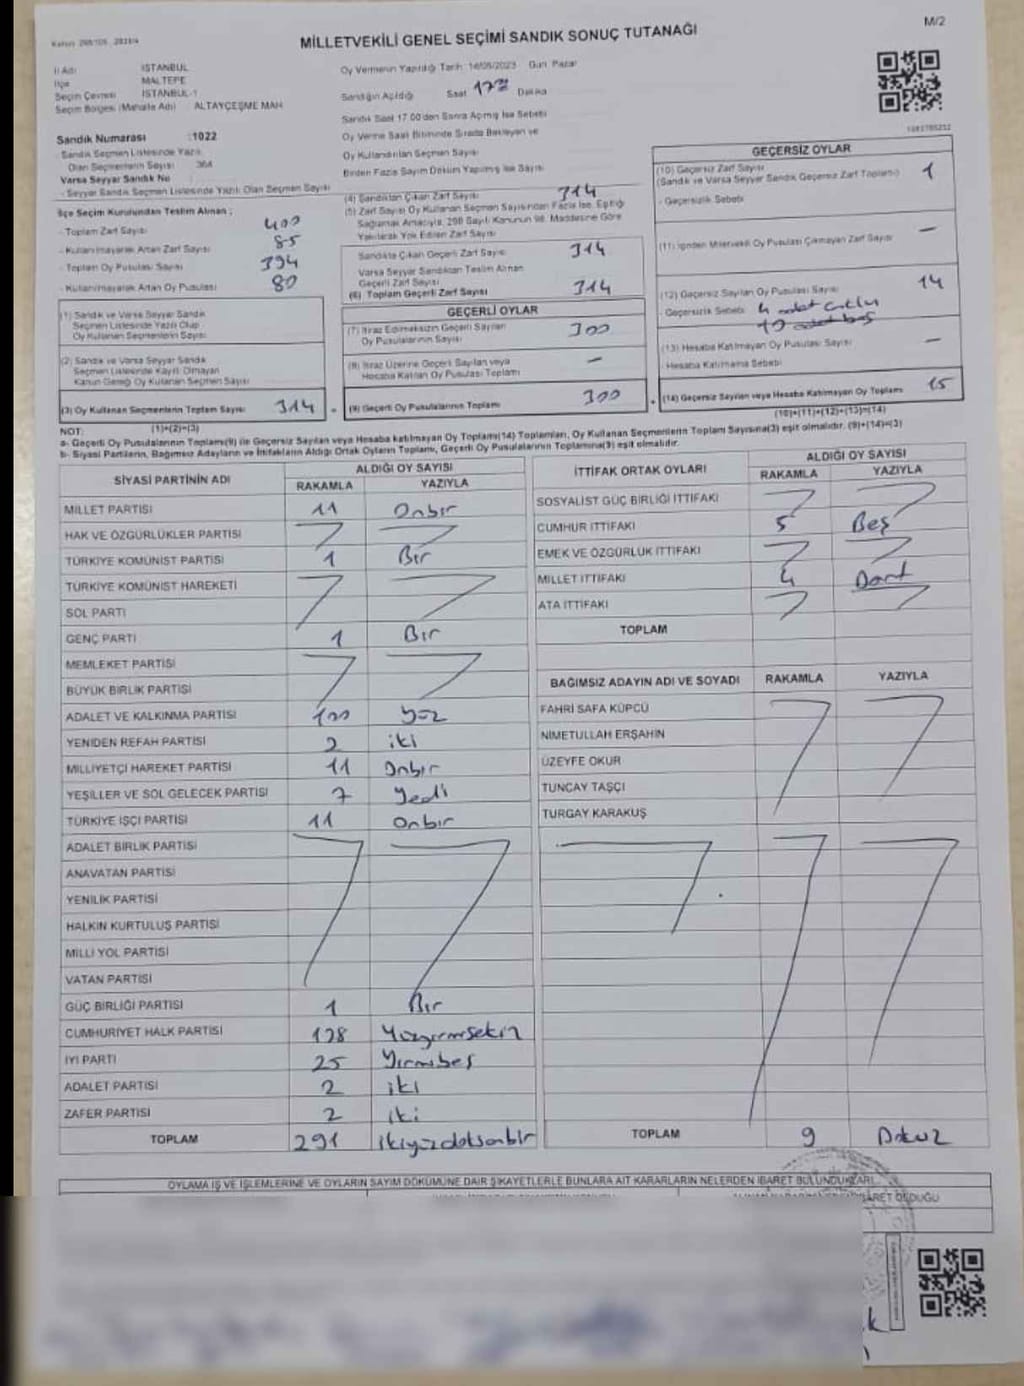 M/2
MİLLETVEKİLİ GENEL SEÇİMİ SANDIK SONUÇ TUTANAĞI
İl Adı İSTANBUL
İlçe MALTEPE
Seçim Çevresi İSTANBUL-1
Seçim Bölgesi (Mahalle Adı) ALTAYÇEŞME MAH
Sandık Numarası :1022
- Sandık Seçmen Listesinde Yazılı
Olan Seçmenlerin Sayısı 364
Varsa Seyyar Sandık No
- Seyyar Sandık Seçmen Listesinde Yazılı Olan Seçmen Sayısı
İlçe Seçim Kurulundan Teslim Alınan ;
- Toplam Zarf Sayısı 400
- Kullanılmayarak Artan Zarf Sayısı 85
- Toplam Oy Pusulası Sayısı 394
- Kullanılmayarak Artan Oy Pusulası 80
(1) Sandık ve Varsa Seyyar Sandık
Seçmen Listesinde Yazılı Olup
Oy Kullanan Seçmenlerin Sayısı
(2) Sandık ve Varsa Seyyar Sandık
Seçmen Listesinde Kayıtlı Olmayan
Kanun Gereği Oy Kullanan Seçmen Sayısı
(3) Oy Kullanan Seçmenlerin Toplam Sayısı 314
(1)+(2)=(3)
Oy Vermenin Yapıldığı Tarih: 14/05/2023 Gün: Pazar
Sandığın Açıldığı Saat 17 Dakika
Sandık Saat 17.00'den Sonra Açılmış İse Sebebi
Oy Verme Saati Bitiminde Sırada Bekleyen ve
Oy Kullandırılan Seçmen Sayısı
Birden Fazla Sayım Döküm Yapılmış İse Sayısı
(4) Sandıktan Çıkan Zarf Sayısı 314
(5) Zarf Sayısı Oy Kullanan Seçmen Sayısından Fazla İse, Eşitliği
Sağlamak Amacıyla, 298 Sayılı Kanunun 98. Maddesine Göre
Yakılarak Yok Edilen Zarf Sayısı
Sandıkta Çıkan Geçerli Zarf Sayısı 314
Varsa Seyyar Sandıktan Teslim Alınan
Geçerli Zarf Sayısı
(6) Toplam Geçerli Zarf Sayısı 314
GEÇERLİ OYLAR
(7) İtiraz Edilmeksizin Geçerli Sayılan
Oy Pusulalarının Sayısı 300
(8) İtiraz Üzerine Geçerli Sayılan veya
Hesaba Katılan Oy Pusulası Toplamı –
(9) Geçerli Oy Pusulalarının Toplamı 300
GEÇERSİZ OYLAR
(10) Geçersiz Zarf Sayısı 1
(Sandık ve Varsa Seyyar Sandık Geçersiz Zarf Toplamı)
- Geçersizlik Sebebi
(11) İçinden Milletvekili Oy Pusulası Çıkmayan Zarf Sayısı –
(12) Geçersiz Sayılan Oy Pusulası Sayısı 14
- Geçersizlik Sebebi 4 adet
10 adet boş
(13) Hesaba Katılmayan Oy Pusulası Sayısı –
- Hesaba Katılmama Sebebi
(14) Geçersiz Sayılan veya Hesaba Katılmayan Oy Toplamı 15
(10)+(11)+(12)+(13)=(14)
NOT:
a- Geçerli Oy Pusulalarının Toplamı(9) ile Geçersiz Sayılan veya Hesaba katılmayan Oy Toplamı(14) Toplamları, Oy Kullanan Seçmenlerin Toplam Sayısına(3) eşit olmalıdır. (9)+(14)=(3)
b- Siyasi Partilerin, Bağımsız Adayların ve İttifakların Aldığı Ortak Oyların Toplamı, Geçerli Oy Pusulalarının Toplamına(9) eşit olmalıdır.
SİYASİ PARTİNİN ADI ALDIĞI OY SAYISI
RAKAMLA YAZIYLA
MİLLET PARTİSİ 11 Onbir
HAK VE ÖZGÜRLÜKLER PARTİSİ
TÜRKİYE KOMÜNİST PARTİSİ 1 Bir
TÜRKİYE KOMÜNİST HAREKETİ
SOL PARTİ
GENÇ PARTİ 1 Bir
MEMLEKET PARTİSİ
BÜYÜK BİRLİK PARTİSİ
ADALET VE KALKINMA PARTİSİ 100 yüz
YENİDEN REFAH PARTİSİ 2 iki
MİLLİYETÇİ HAREKET PARTİSİ 11 Onbir
YEŞİLLER VE SOL GELECEK PARTİSİ 7 Yedi
TÜRKİYE İŞÇİ PARTİSİ 11 Onbir
ADALET BİRLİK PARTİSİ
ANAVATAN PARTİSİ
YENİLİK PARTİSİ
HALKIN KURTULUŞ PARTİSİ
MİLLİ YOL PARTİSİ
VATAN PARTİSİ
GÜÇ BİRLİĞİ PARTİSİ 1 Bir
CUMHURİYET HALK PARTİSİ 128 Yüzyirmisekiz
İYİ PARTİ 25 Yirmibeş
ADALET PARTİSİ 2 iki
ZAFER PARTİSİ 2 iki
TOPLAM 291 ikiyüzdoksanbir
İTTİFAK ORTAK OYLARI ALDIĞI OY SAYISI
RAKAMLA YAZIYLA
SOSYALİST GÜÇ BİRLİĞİ İTTİFAKI
CUMHUR İTTİFAKI 5 Beş
EMEK VE ÖZGÜRLÜK İTTİFAKI
MİLLET İTTİFAKI 4 Dört
ATA İTTİFAKI
TOPLAM
BAĞIMSIZ ADAYIN ADI VE SOYADI RAKAMLA YAZIYLA
FAHRİ SAFA KÜPCÜ
NİMETULLAH ERŞAHİN
ÜZEYFE OKUR
TUNCAY TAŞÇI
TURGAY KARAKUŞ
TOPLAM 9 Dokuz
OYLAMA İŞ VE İŞLEMLERİNE VE OYLARIN SAYIM DÖKÜMÜNE DAİR ŞİKAYETLERLE BUNLARA AİT KARARLARIN NELERDEN İBARET BULUNDUKLARI